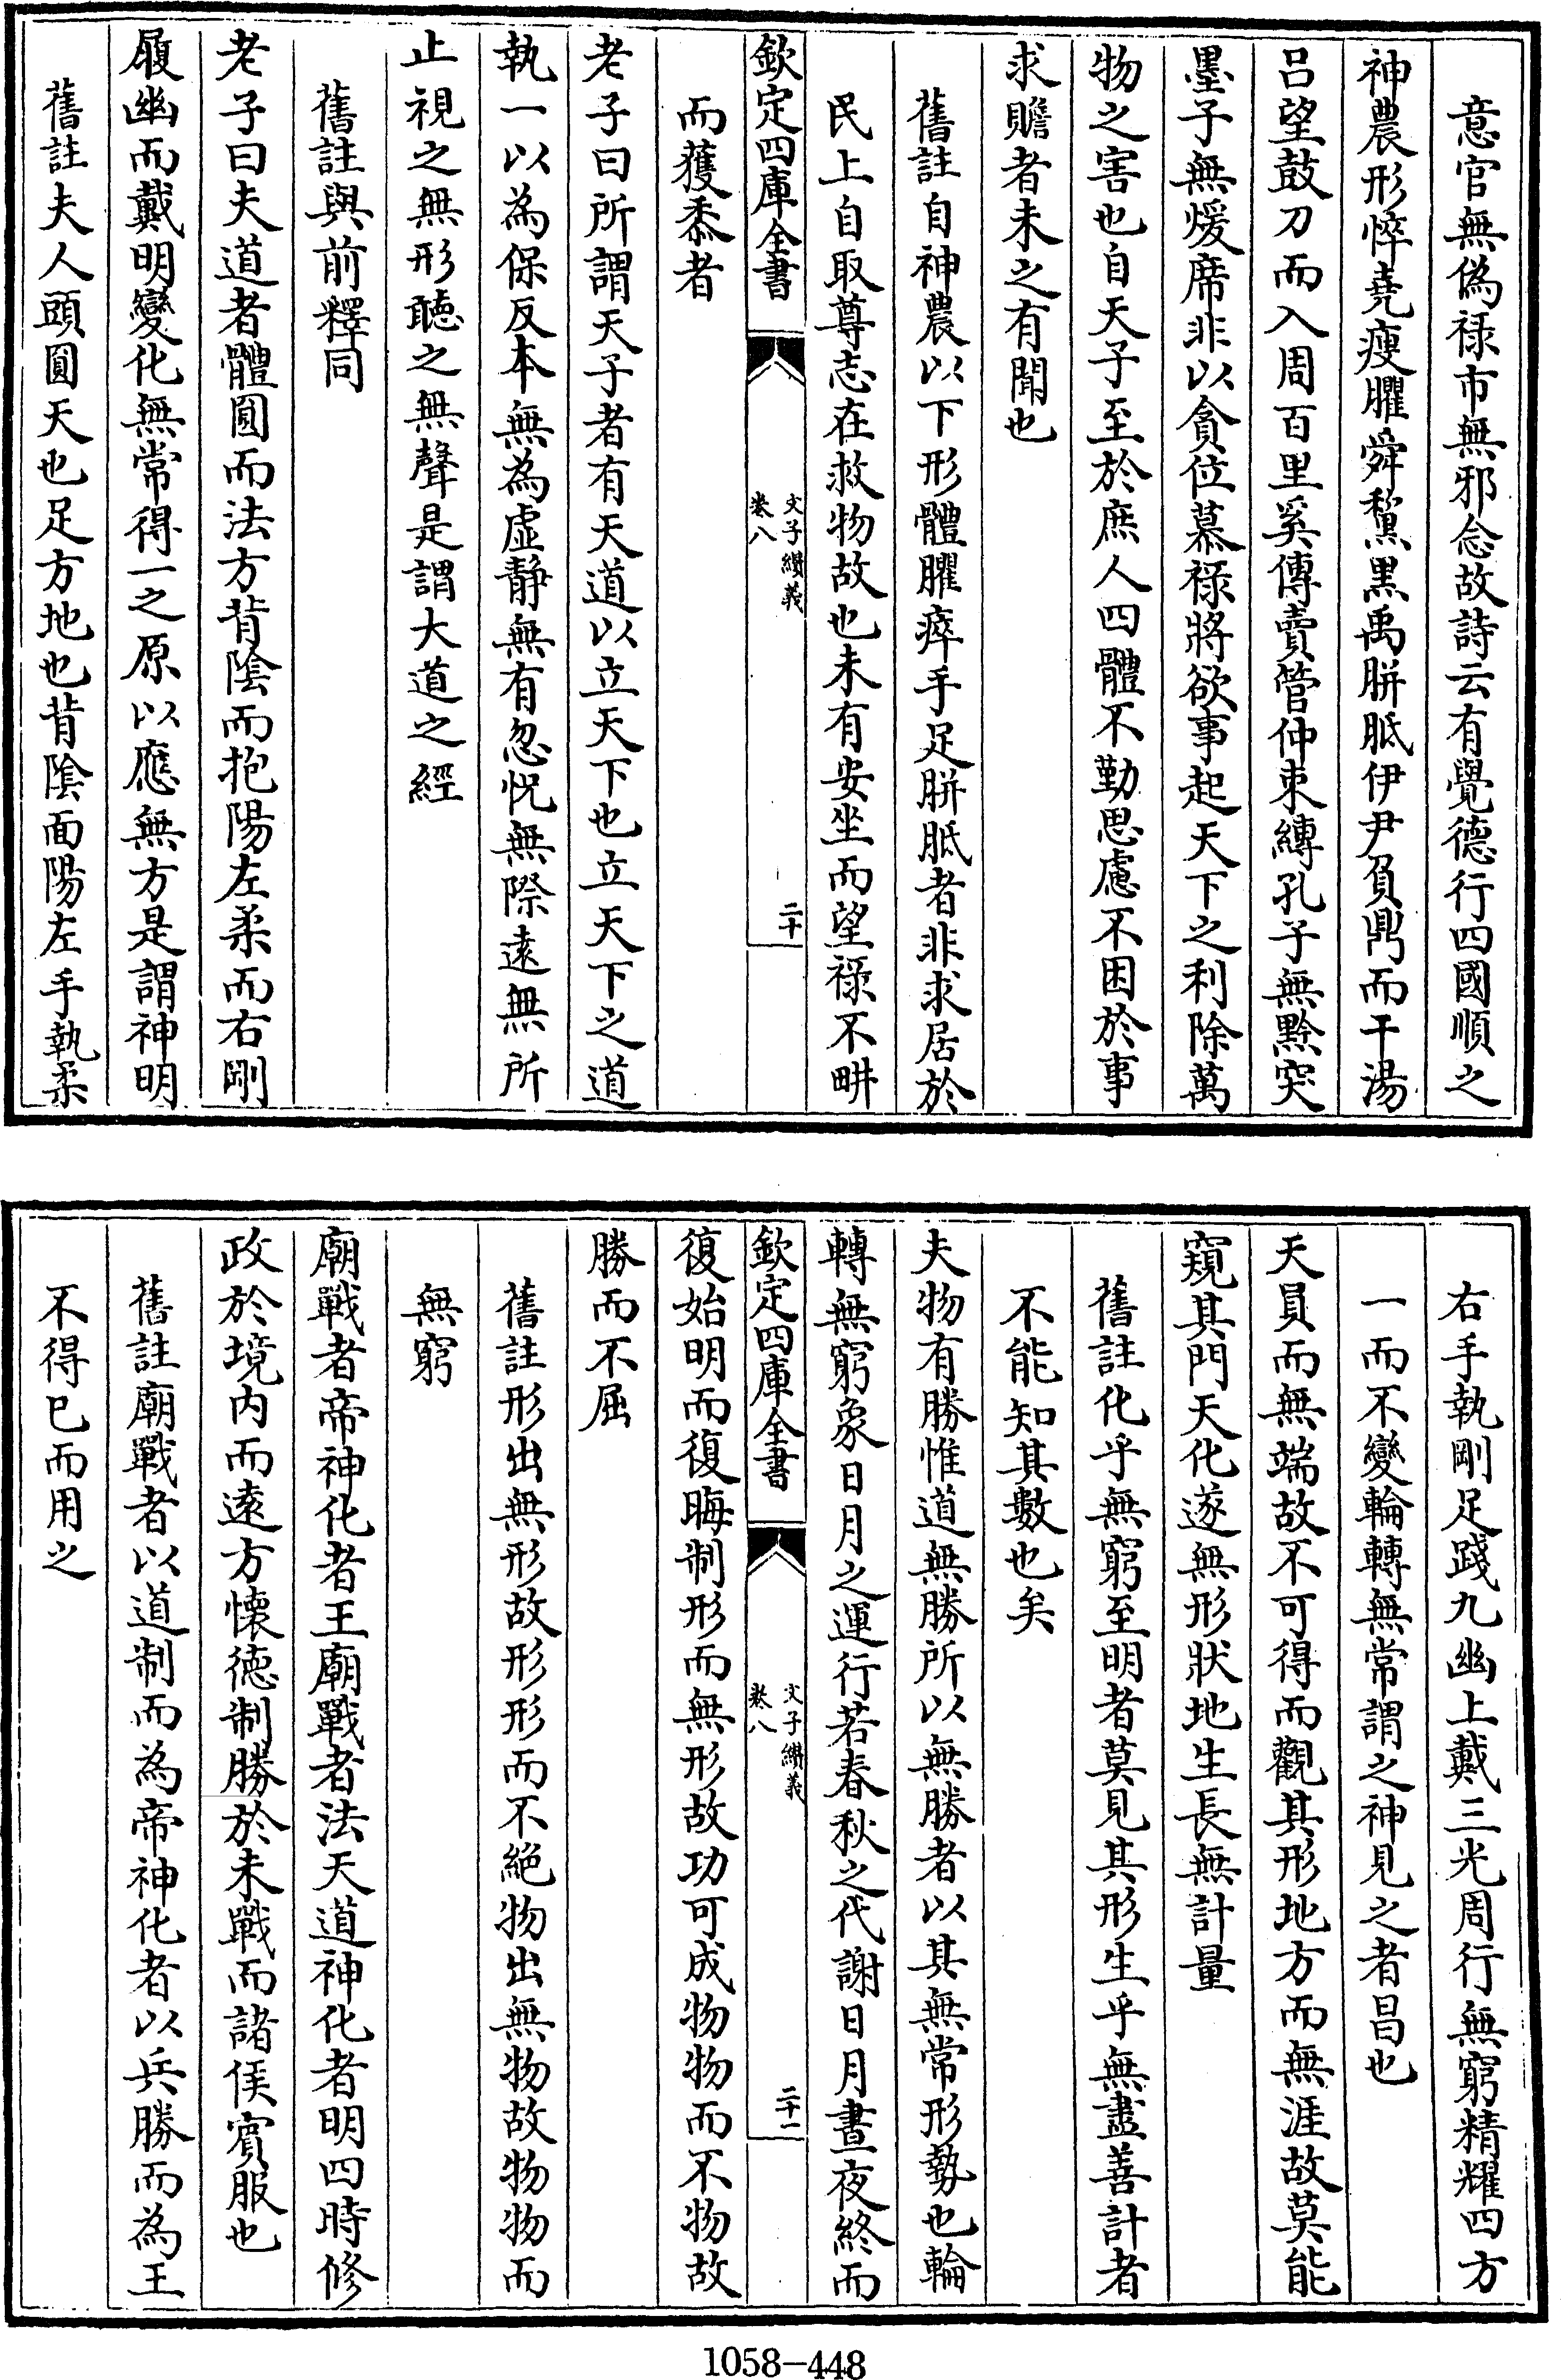 意官無偽禄市無邪念故詩云有覺德行四國順之
神農形悴堯瘦臞舜黧黒禹胼胝伊尹負鼎而干湯
吕望鼓刀而入周百里奚傳賣管仲束縛孔子無黔突
墨子無煖席非以貪位慕禄將欲事起天下之利除萬
物之害也自天子至於庶人四體不勤思慮不困於事
求贍者未之有聞也
舊註自神農以下形體臞瘁手足胼胝者非求居於
民上自取尊志在救物故也未有安坐而望禄不畊
欽定四庫全書
文子纘義
卷八
二十
而獲黍者
老子曰所謂天子者有天道以立天下也立天下之道
執一以為保反本無為虚静無有忽怳無際逺無所
止視之無形聽之無聲是謂大道之經
舊註與前釋同
老子曰夫道者體圓而法方背陰而抱陽左柔而右剛
履幽而戴明變化無常得一之原以應無方是謂神明
舊註夫人頭圓天也足方地也背陰面陽左手執柔
右手執剛足踐九幽上戴三光周行無窮精耀四方
一而不變輪轉無常謂之神見之者昌也
天員而無端故不可得而觀其形地方而無涯故莫能
窺其門天化遂無形狀地生長無計量
舊註化乎無窮至明者莫見其形生乎無盡善計者
不能知其數也矣
夫物有勝惟道無勝所以無勝者以其無常形勢也輪
轉無窮象日月之運行若春秋之代謝日月晝夜終而
欽定四庫全書
文子纘義
卷八
二十一
復始明而復晦制形而無形故功可成物物而不物故
勝而不屈
舊註形出無形故形形而不絶物出無物故物物而
無窮
廟戰者帝神化者王廟戰者法天道神化者明四時修
政於境内而逺方懐德制勝於未戰而諸侯賓服也
舊註廟戰者以道制而為帝神化者以兵勝而為王
不得已而用之
1058-448